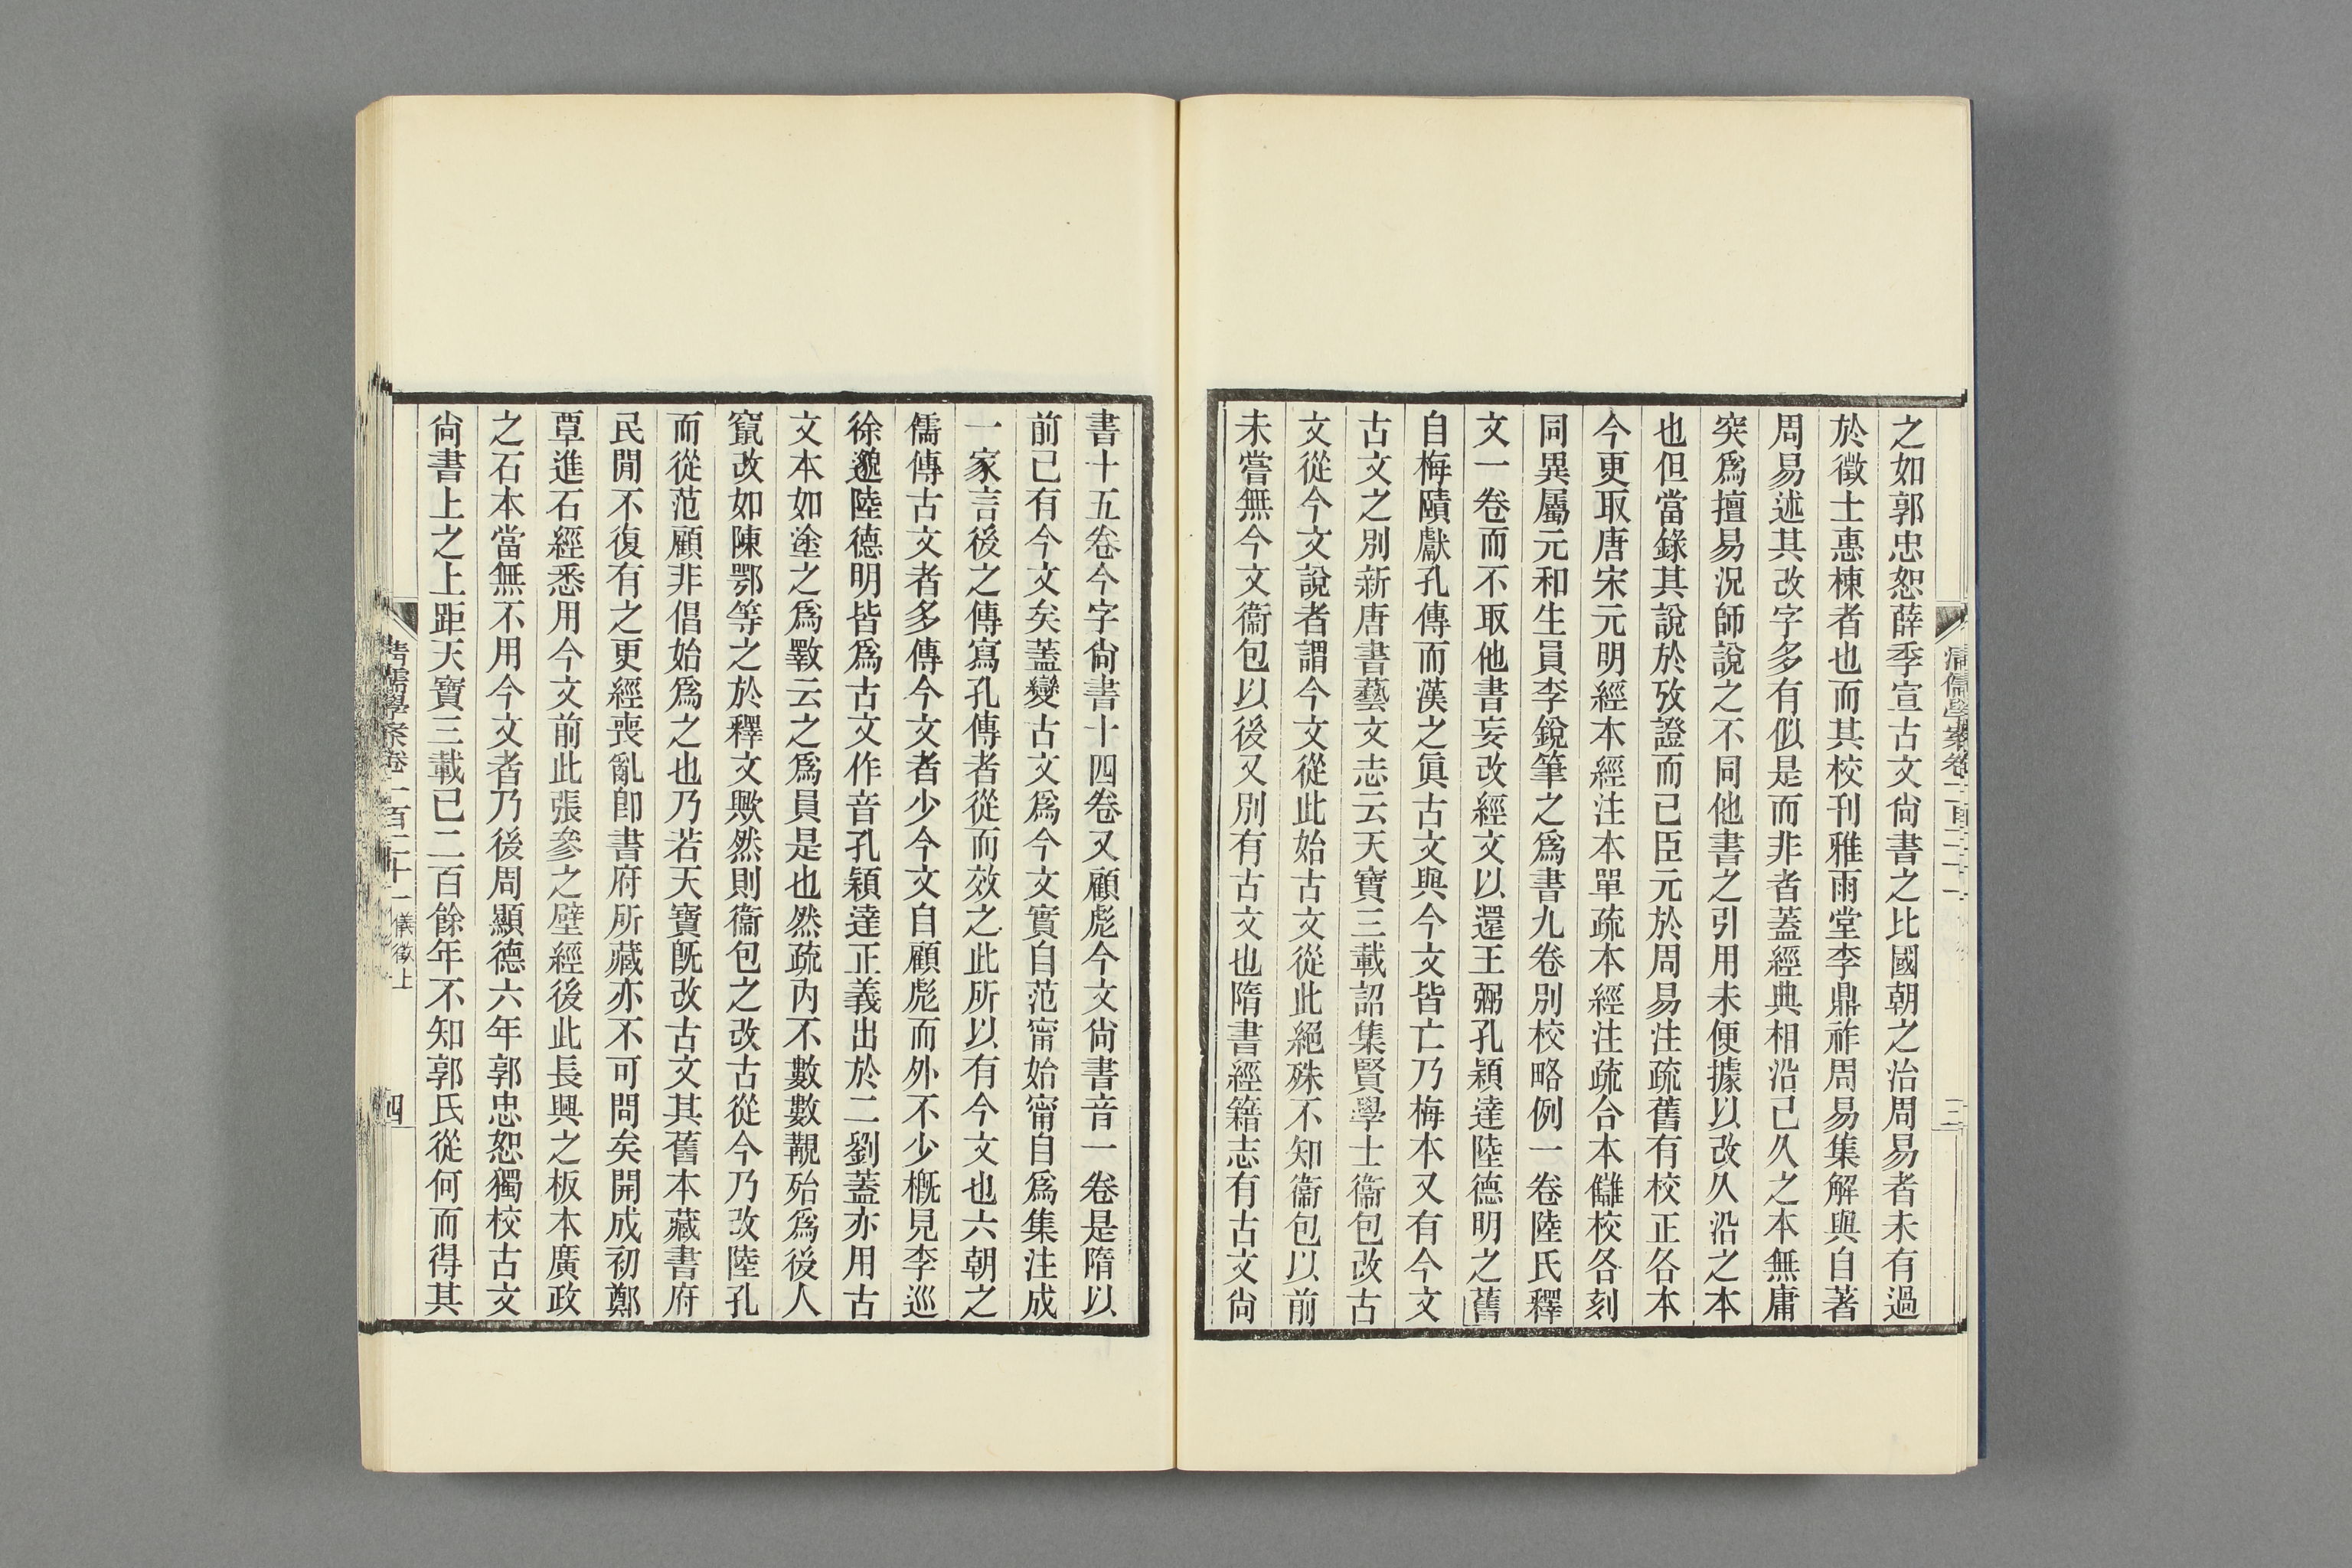 之如郭忠恕薛季宣古文尙書之比國朝之治周易者未有過
於徵士惠棟者也而其校刊雅雨堂李鼎祚周易集解與自著
周易述其改字多有似是而非者蓋經典相沿已久之本無庸
突爲擅易況師說之不同他書之引用未便據以改久沿之本
也但當錄其說於攷證而已臣元於周易注疏舊有校正各本
今更取唐宋元明經本經注本單疏本經注疏合本讎校各刻
同異屬元和生員李銳筆之爲書九卷別校略例一卷陸氏釋
文一卷而不取他書妄改經文以還王弼孔穎達陸德明之舊
自梅賾獻孔傳而漢之眞古文與今文皆亡乃梅本又有今文
古文之別新唐書藝文志云天寶三載詔集賢學士衞包改古
文從今文說者謂今文從此始古文從此絕殊不知衞包以前
未嘗無今文衞包以後又別有古文也隋書經籍志有古文尙
書十五卷今字尙書十四卷又顧彪今文尙書音一卷是隋以
前已有今文矣蓋變古文爲今文實自范甯始甯自爲集注成
一家言後之傳寫孔傳者從而效之此所以有今文也六朝之
儒傳古文者多傳今文者少今文自顧彪而外不少槪見李巡
徐邈陸德明皆爲古文作音孔穎達正義出於二劉蓋亦用古
文本如塗之爲斁云之爲員是也然疏內不數數覯殆爲後人
竄改如陳鄂等之於釋文歟然則衞包之改古從今乃改陸孔
而從范顧非倡始爲之也乃若天寶旣改古文其舊本藏書府
民閒不復有之更經喪亂卽書府所藏亦不可問矣開成初鄭
覃進石經悉用今文前此張參之壁經後此長興之板本廣政
之石本當無不用今文者乃後周顯德六年郭忠恕獨校古文
尙書上之上距天寶三載已二百餘年不知郭氏從何而得其
清儒學案卷一百二十一
三
清儒學案卷一百二十一 儀徵上
四